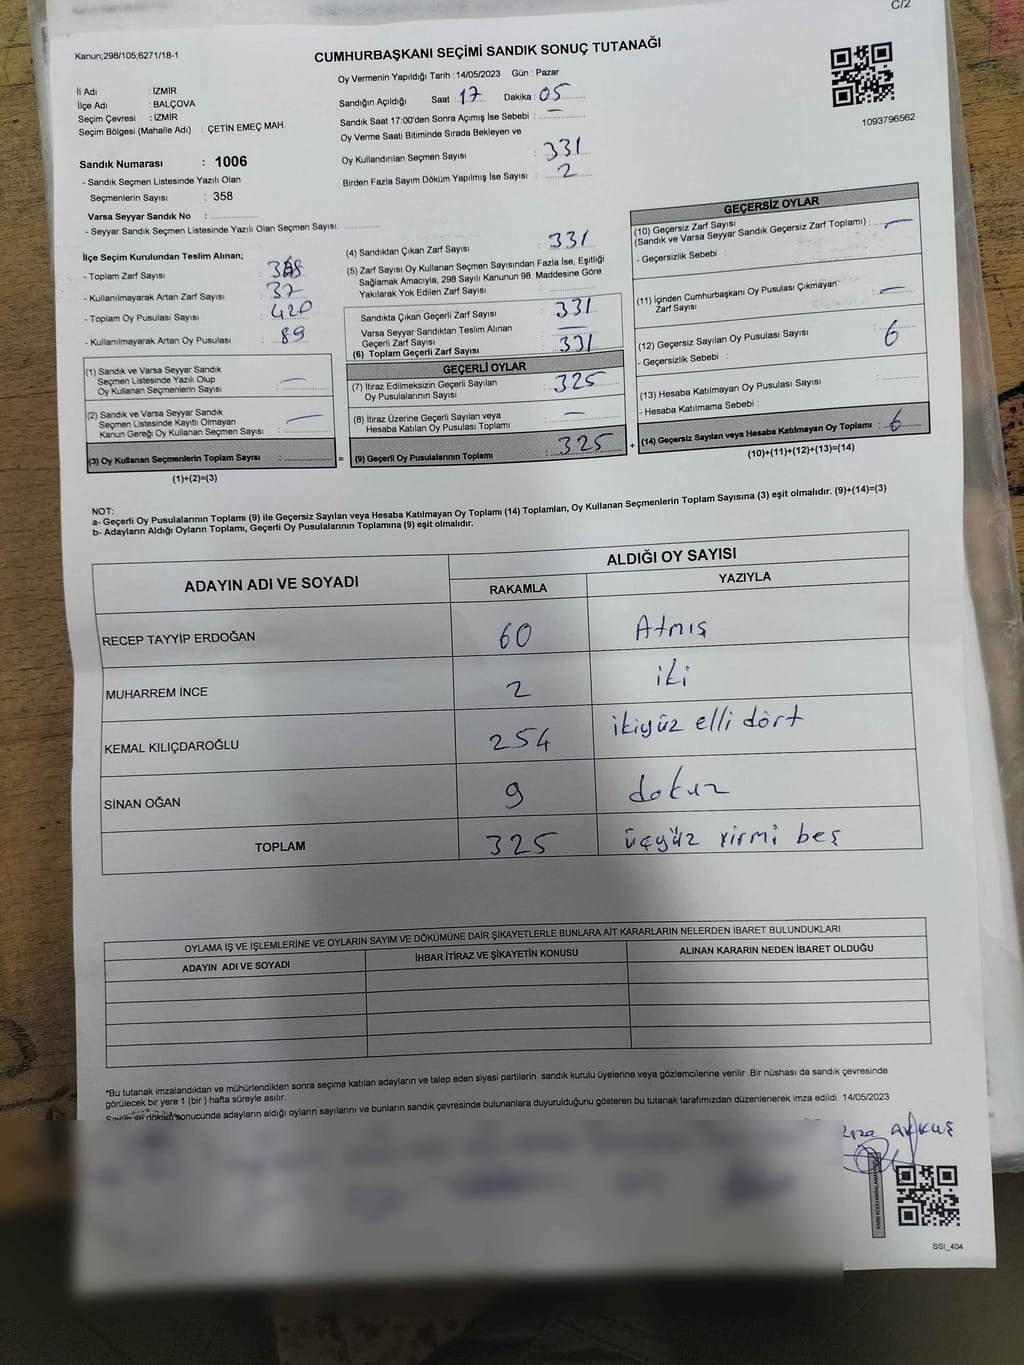 C/2
Kanun;298/105;6271/18-1
CUMHURBAŞKANI SEÇİMİ SANDIK SONUÇ TUTANAĞI
Oy Vermenin Yapıldığı Tarih :14/05/2023 Gün : Pazar
İl Adı : İZMİR
İlçe Adı : BALÇOVA
Seçim Çevresi : İZMİR
Seçim Bölgesi (Mahalle Adı) : ÇETİN EMEÇ MAH.
Sandığın Açıldığı Saat : 17 Dakika : 05
Sandık Saat 17:00'den Sonra Açımış İse Sebebi : —
1093796562
Oy Verme Saati Bitiminde Sırada Bekleyen ve
Oy Kullandırılan Seçmen Sayısı : 331
Birden Fazla Sayım Döküm Yapılmış İse Sayısı : 2
Sandık Numarası : 1006
- Sandık Seçmen Listesinde Yazılı Olan
Seçmenlerin Sayısı : 358
Varsa Seyyar Sandık No :
- Seyyar Sandık Seçmen Listesinde Yazılı Olan Seçmen Sayısı:
İlçe Seçim Kurulundan Teslim Alınan;
- Toplam Zarf Sayısı :
- Kullanılmayarak Artan Zarf Sayısı : 37
- Toplam Oy Pusulası Sayısı : 420
- Kullanılmayarak Artan Oy Pusulası : 89
(1) Sandık ve Varsa Seyyar Sandık
Seçmen Listesinde Yazılı Olup
Oy Kullanan Seçmenlerin Sayısı : —
(2) Sandık ve Varsa Seyyar Sandık
Seçmen Listesinde Kayıtlı Olmayan
Kanun Gereği Oy Kullanan Seçmen Sayısı : —
(3) Oy Kullanan Seçmenlerin Toplam Sayısı :
(1)+(2)=(3)
(4) Sandıktan Çıkan Zarf Sayısı : 331
(5) Zarf Sayısı Oy Kullanan Seçmen Sayısından Fazla İse, Eşitliği
Sağlamak Amacıyla, 298 Sayılı Kanunun 98. Maddesine Göre
Yakılarak Yok Edilen Zarf Sayısı :
Sandıkta Çıkan Geçerli Zarf Sayısı : 331
Varsa Seyyar Sandıktan Teslim Alınan
Geçerli Zarf Sayısı : —
(6) Toplam Geçerli Zarf Sayısı : 331
GEÇERLİ OYLAR
(7) İtiraz Edilmeksizin Geçerli Sayılan
Oy Pusulalarının Sayısı : 325
(8) İtiraz Üzerine Geçerli Sayılan veya
Hesaba Katılan Oy Pusulası Toplamı : —
= (9) Geçerli Oy Pusulalarının Toplamı : 325
GEÇERSİZ OYLAR
(10) Geçersiz Zarf Sayısı
(Sandık ve Varsa Seyyar Sandık Geçersiz Zarf Toplamı) : —
- Geçersizlik Sebebi :
(11) İçinden Cumhurbaşkanı Oy Pusulası Çıkmayan
Zarf Sayısı : —
(12) Geçersiz Sayılan Oy Pusulası Sayısı : 6
- Geçersizlik Sebebi :
(13) Hesaba Katılmayan Oy Pusulası Sayısı :
- Hesaba Katılmama Sebebi :
+ (14) Geçersiz Sayılan veya Hesaba Katılmayan Oy Toplamı : 6
(10)+(11)+(12)+(13)=(14)
NOT:
a- Geçerli Oy Pusulalarının Toplamı (9) ile Geçersiz Sayılan veya Hesaba Katılmayan Oy Toplamı (14) Toplamları, Oy Kullanan Seçmenlerin Toplam Sayısına (3) eşit olmalıdır. (9)+(14)=(3)
b- Adayların Aldığı Oyların Toplamı, Geçerli Oy Pusulalarının Toplamına (9) eşit olmalıdır.
ADAYIN ADI VE SOYADI ALDIĞI OY SAYISI
RAKAMLA YAZIYLA
RECEP TAYYİP ERDOĞAN 60 Atmış
MUHARREM İNCE 2 iki
KEMAL KILIÇDAROĞLU 254 ikiyüz elli dört
SİNAN OĞAN 9 dokuz
TOPLAM 325 üçyüz yirmi beş
OYLAMA İŞ VE İŞLEMLERİNE VE OYLARIN SAYIM VE DÖKÜMÜNE DAİR ŞİKAYETLERLE BUNLARA AİT KARARLARIN NELERDEN İBARET BULUNDUKLARI
ADAYIN ADI VE SOYADI İHBAR İTİRAZ VE ŞİKAYETİN KONUSU ALINAN KARARIN NEDEN İBARET OLDUĞU
*Bu tutanak imzalandıktan ve mühürlendikten sonra seçime katılan adayların ve talep eden siyasi partilerin sandık kurulu üyelerine veya gözlemcilerine verilir .Bir nüshası da sandık çevresinde
görülecek bir yere 1 (bir ) hafta süreyle asılır.
Sayım ve döküm sonucunda adayların aldığı oyların sayılarını ve bunların sandık çevresinde bulunanlara duyurulduğunu gösteren bu tutanak tarafımızdan düzenlenerek imza edildi. 14/05/2023
SSI_404